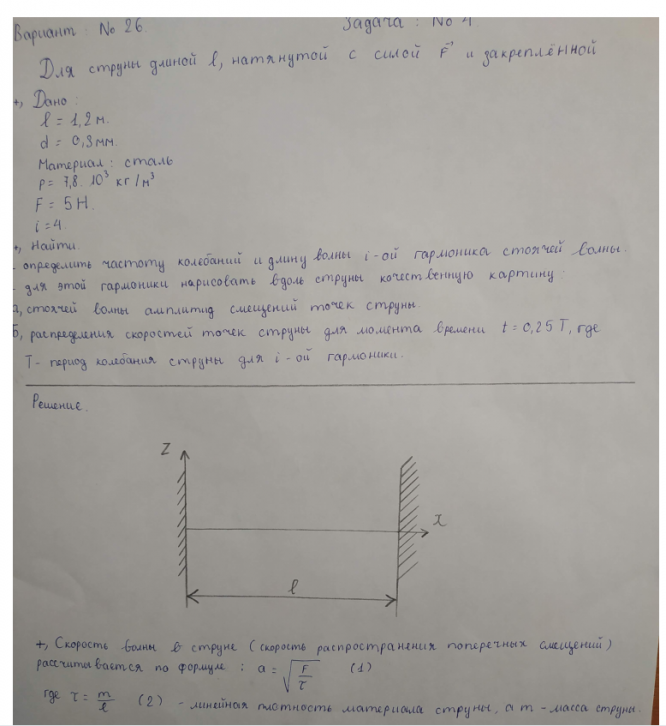 Вариант: № 26 Задача: № 4
Для струны длиной l, натянутой с силой F⃗ и закреплённой
+, Дано:
l = 1,2 м.
d = 0,3 мм.
Материал: сталь
ρ = 7,8 · 10³ кг/м³
F = 5 Н.
i = 4.
+, Найти.
- определить частоту колебаний и длину волны i-ой гармоника стоячей волны.
- для этой гармоники нарисовать вдоль струны качественную картину:
а, стоячей волны амплитуд смещений точек струны.
б, распределения скоростей точек струны для момента времени t = 0,25 T, где
T - период колебания струны для i-ой гармоники.
Решение.
Z
X
l
+, Скорость волны в струне (скорость распространения поперечных смещений)
рассчитывается по формуле: a = √(F/τ) (1)
где τ = m/l (2) - линейная плотность материала струны, а m - масса струны.